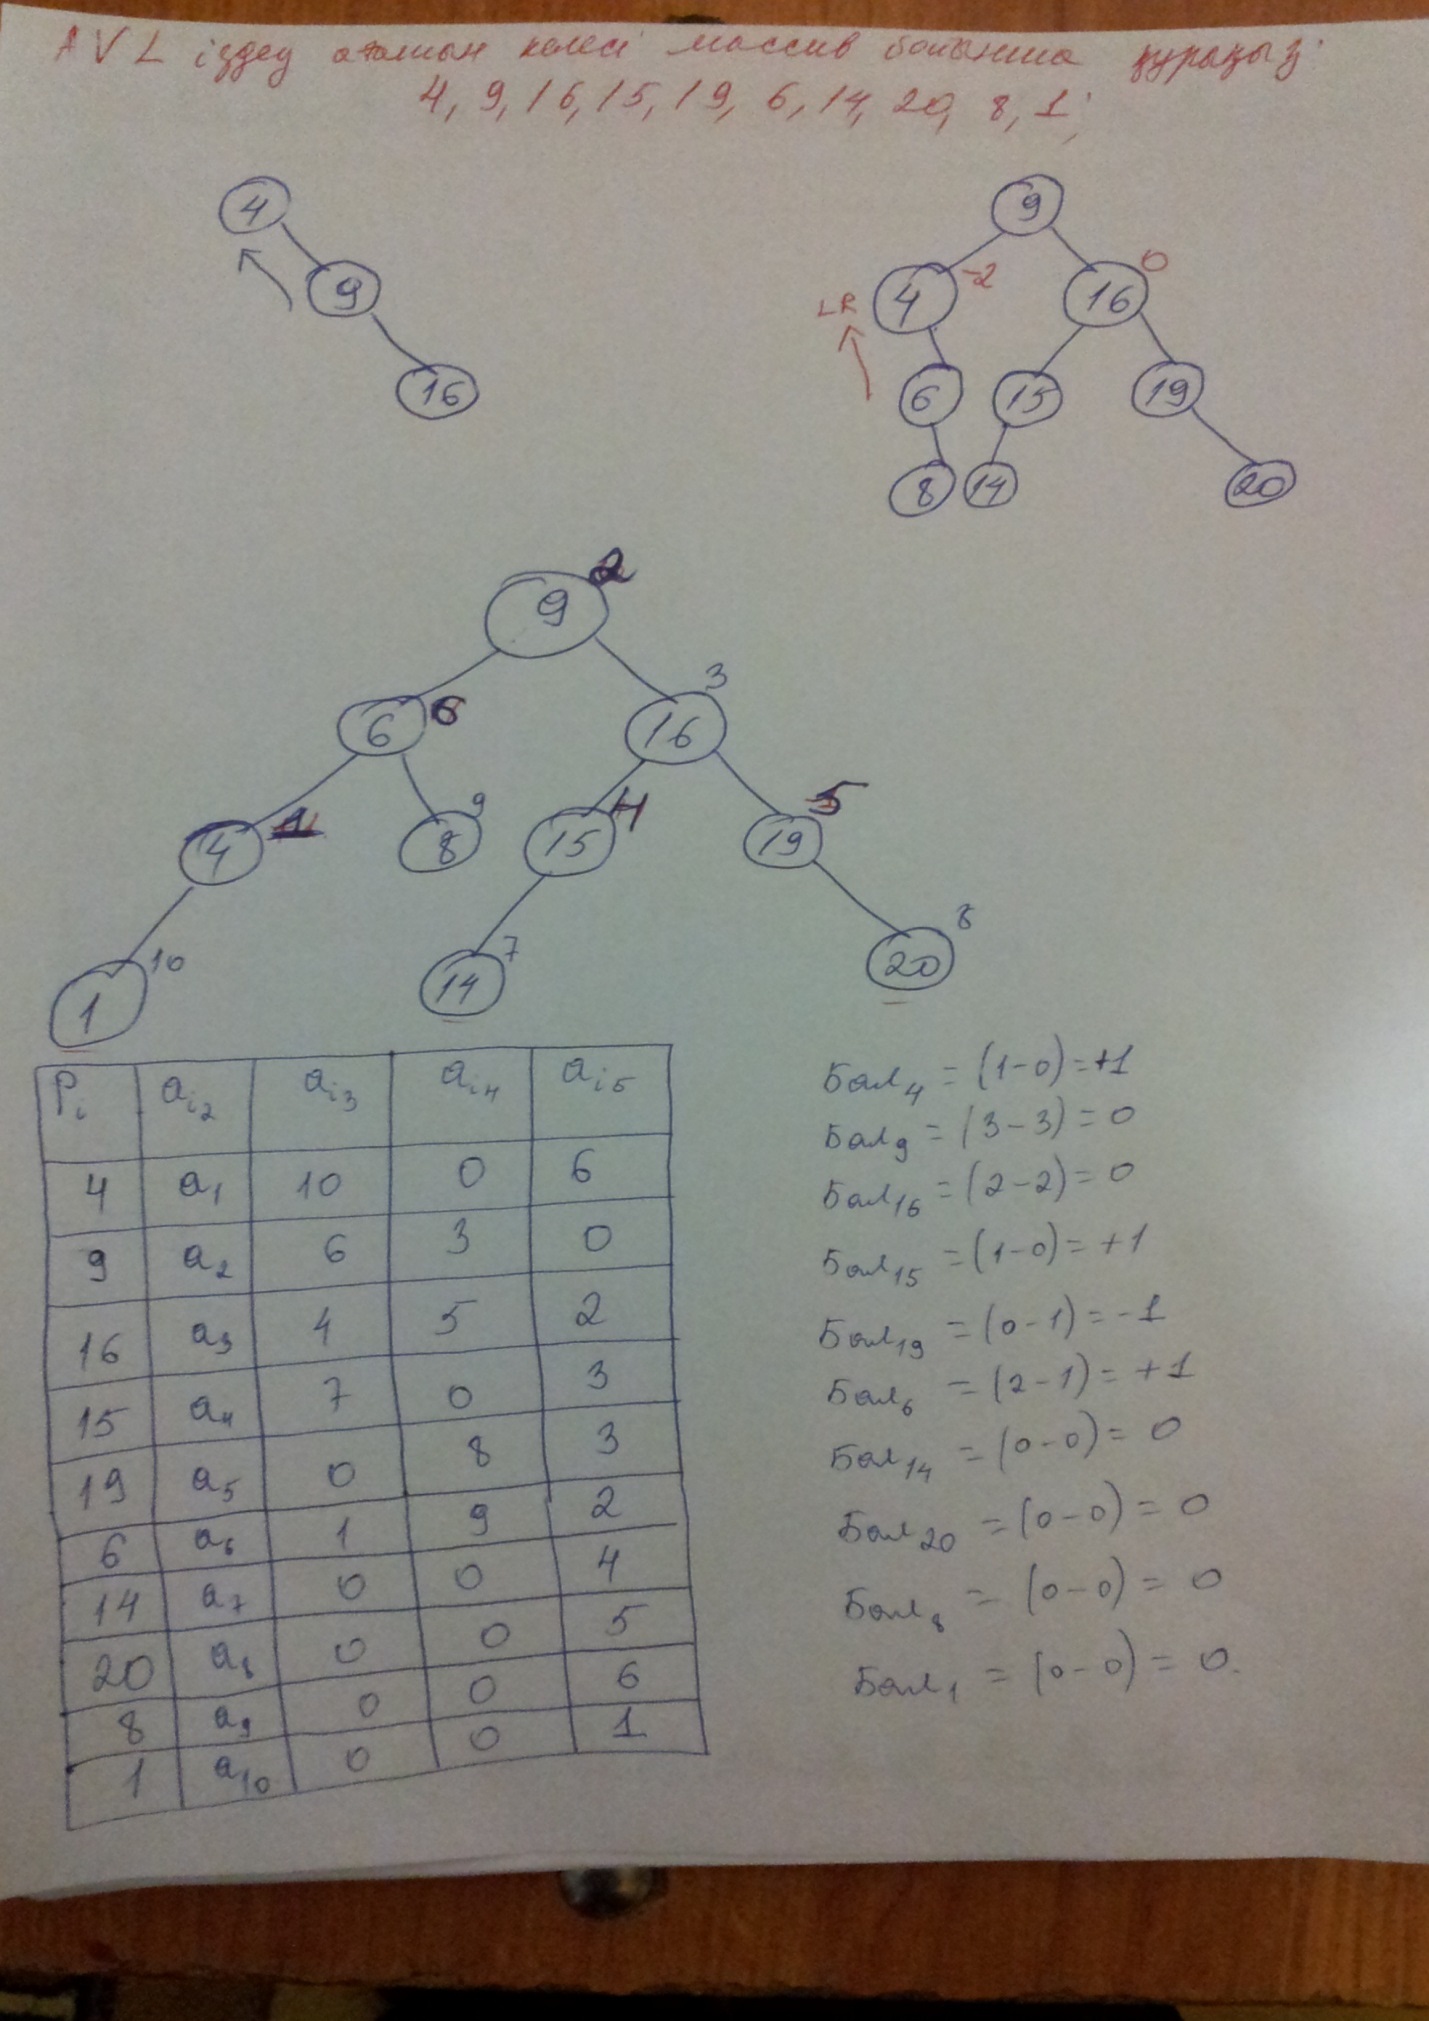 AVL іздеу ағашын келесі массив бойынша құрыңыз:
4, 9, 16, 15, 19, 6, 14, 20, 8, 1;
4
9
16
9
4 -2
16 0
LR
6
15
19
8
14
20
9 2
6 6
16 3
4 1
8 9
15 4
19 5
1 10
14 7
20 8
Pi ai2 ai3 ai4 ai5
4 a1 10 0 6
9 a2 6 3 0
16 a3 4 5 2
15 a4 7 0 3
19 a5 0 8 3
6 a6 1 9 2
14 a7 0 0 4
20 a8 0 0 5
8 a9 0 0 6
1 a10 0 0 1
Бал4 = (1-0)=+1
Бал9 = (3-3)=0
Бал16 = (2-2)=0
Бал15 = (1-0)=+1
Бал19 = (0-1)=-1
Бал6 = (2-1)=+1
Бал14 = (0-0)=0
Бал20 = (0-0)=0
Бал8 = (0-0)=0
Бал1 = (0-0)=0.